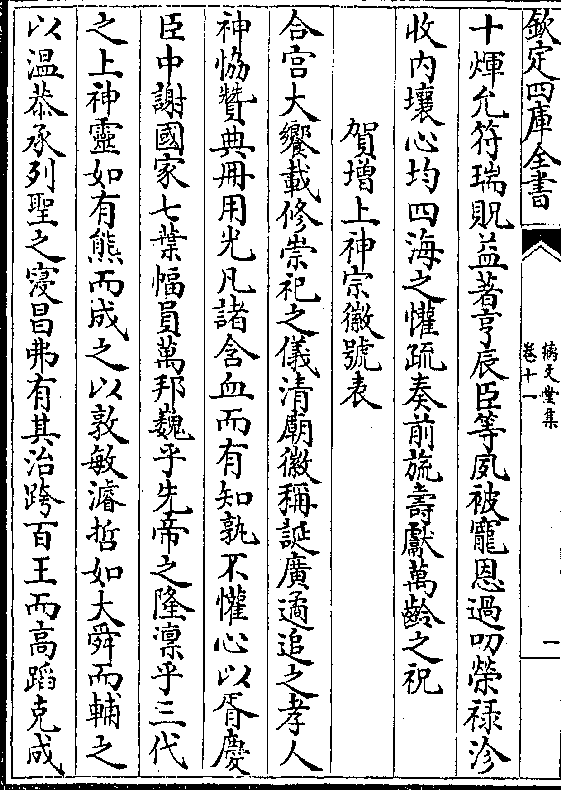 欽定四庫全書
摛文堂集
卷十一
一
十煇允符瑞貺益著亨辰臣等夙被寵恩過叨榮祿沴
收内壤心均四海之懽疏奏前旒壽獻萬齡之祝
賀增上神宗徽號表
合宫大饗載修崇祀之儀清廟徽稱誕廣遹追之孝人
神恊贊典冊用光凡諸含血而有知孰不懽心以胥慶
臣中謝國家七葉幅員萬邦巍乎先帝之隆凛乎三代
之上神靈如有熊而成之以敦敏濬哲如大舜而輔之
以温恭承列聖之寖昌弗有其治跨百王而高蹈克成